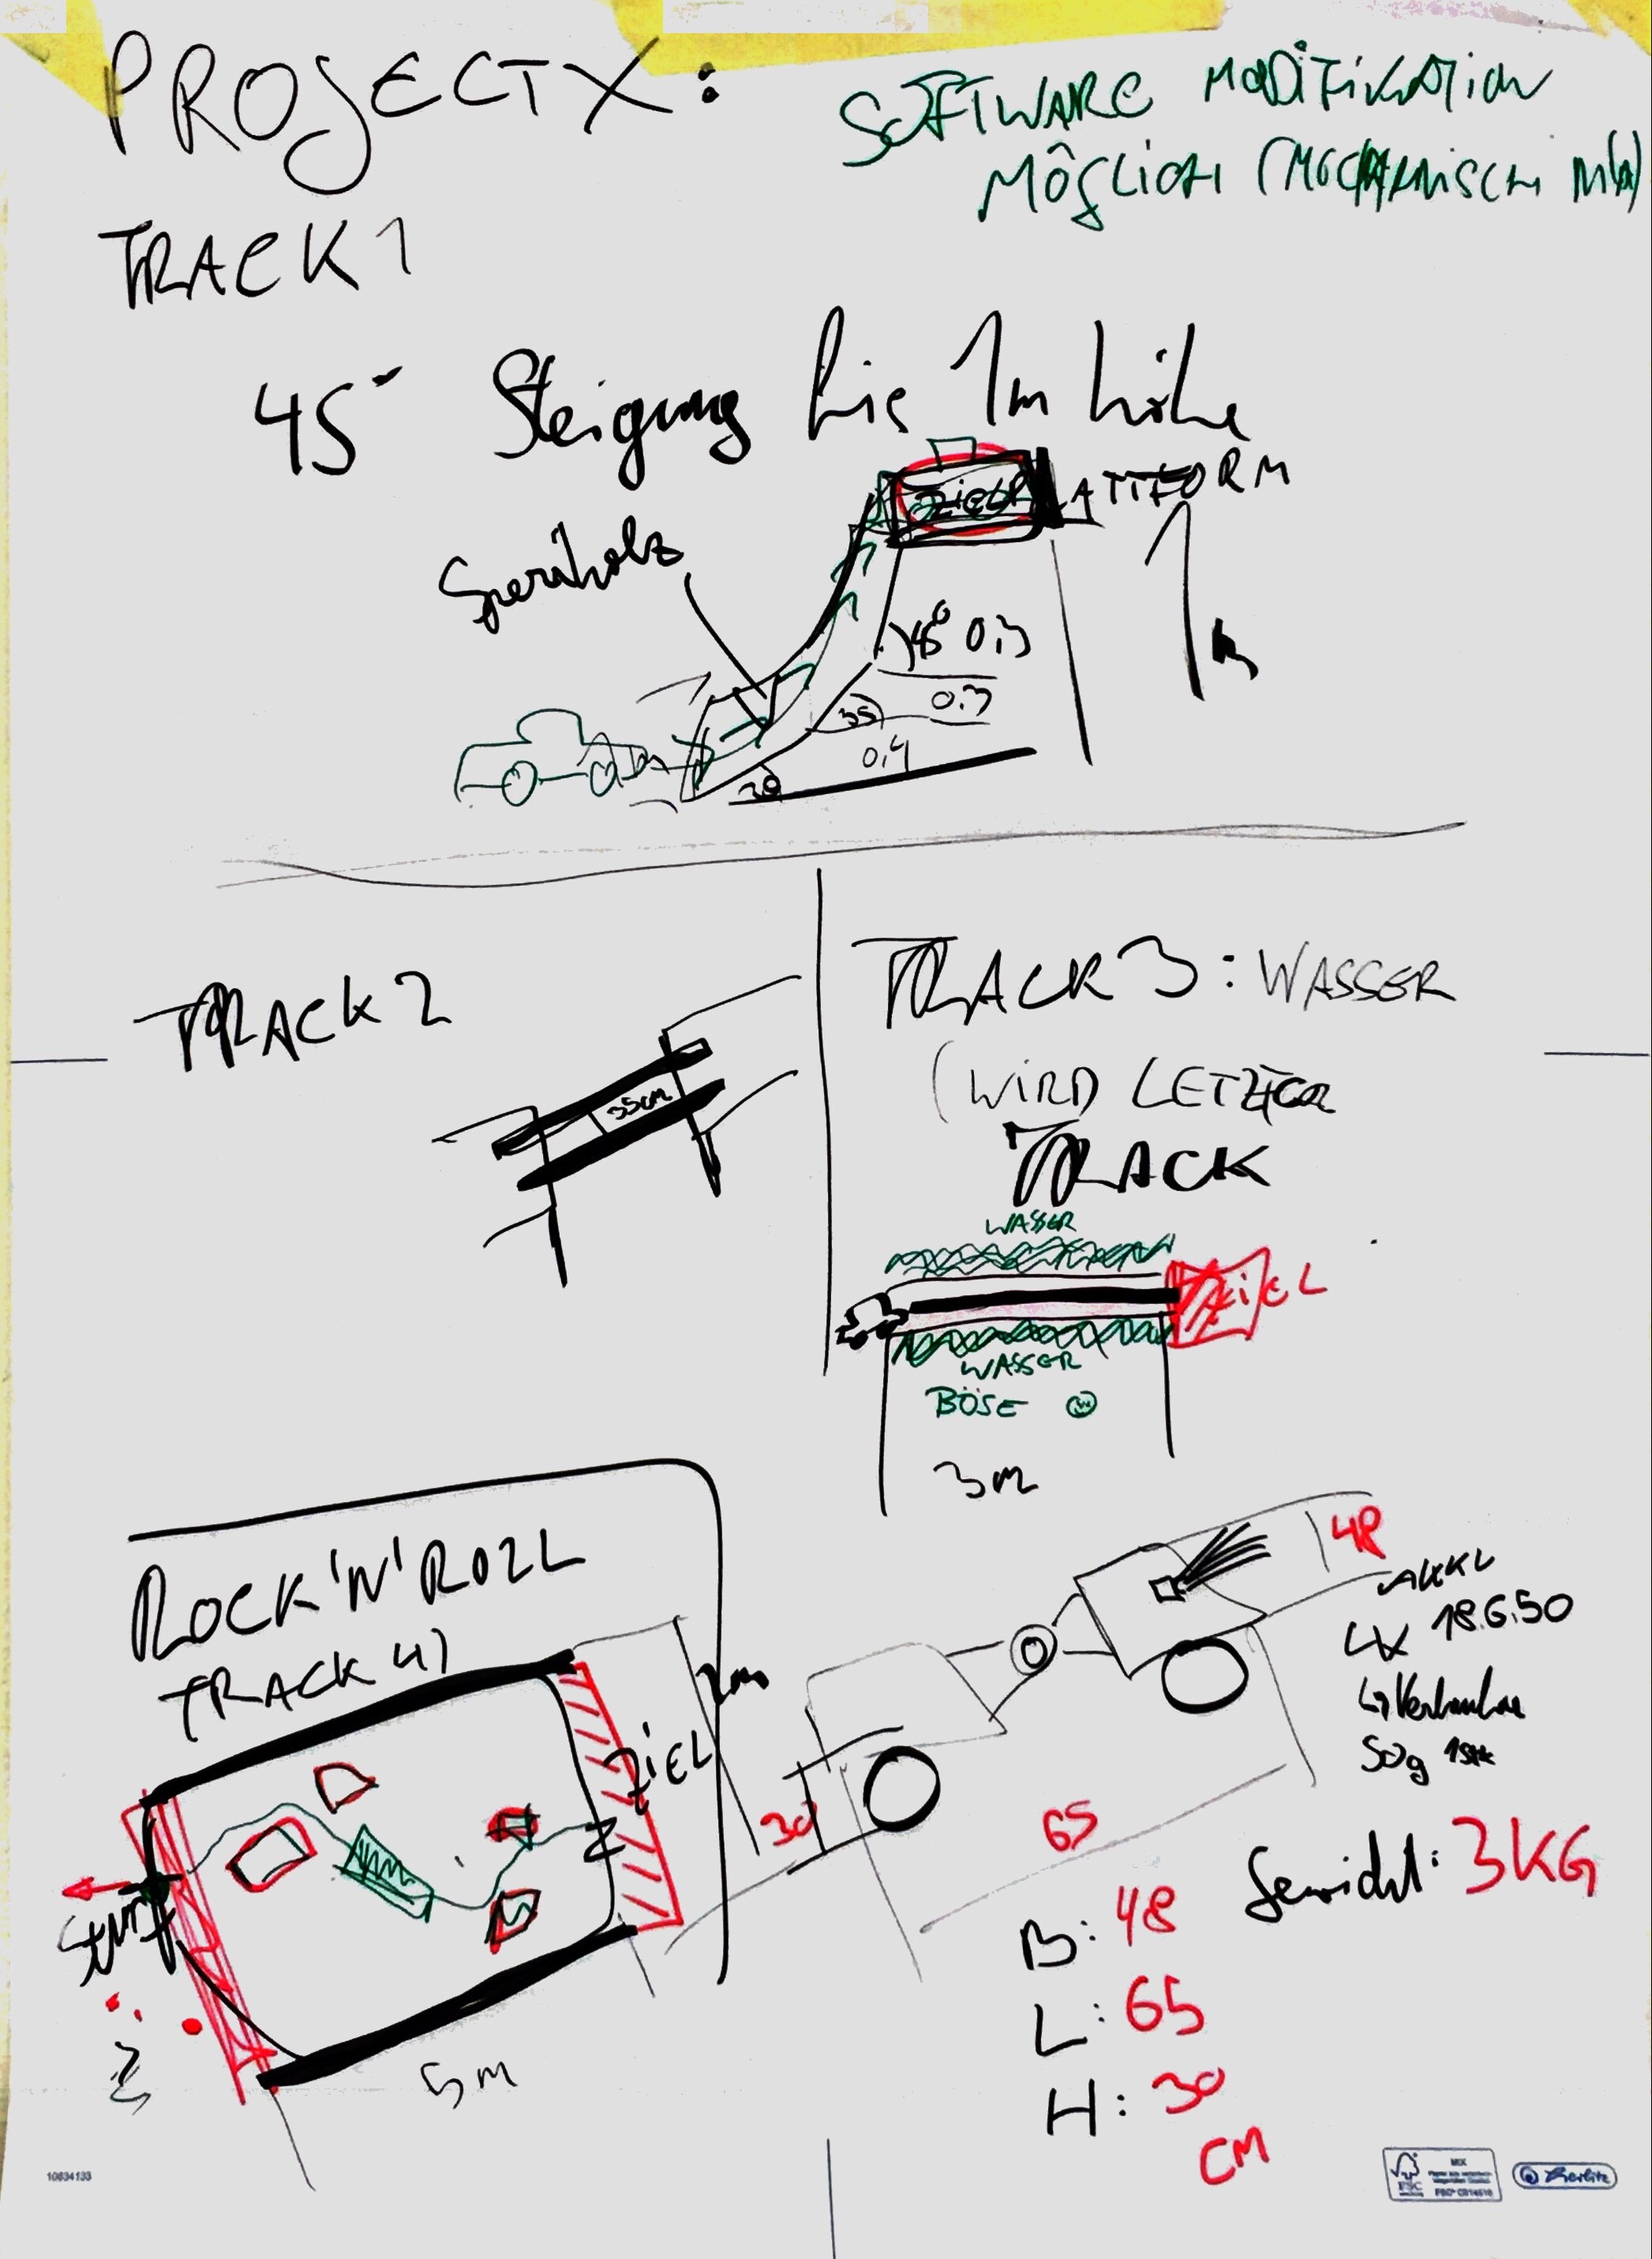 PROJECT X:
SOFTWARE MODIFIKATION
MÖGLICH (MECHANISCH
TRACK 1
45° Steigung bis 1m höhe
ZIEL PLATTFORM
Sperrholz
45° 0,3
35 0,3
0,4
30
TRACK 2
35cm
TRACK 3: WASSER
(WIRD LETZTER
TRACK
WASSER
ZIEL
WASSER
BÖSE
3m
ROCK'N'ROLL
TRACK 4)
2m
ZIEL
START
5m
48
AKKU
4x 18.6.50
50g 1Stk
30
65
Gewicht: 3KG
B: 48
L: 65
H: 30
CM
10634133
FSC
MIX
Herlitz